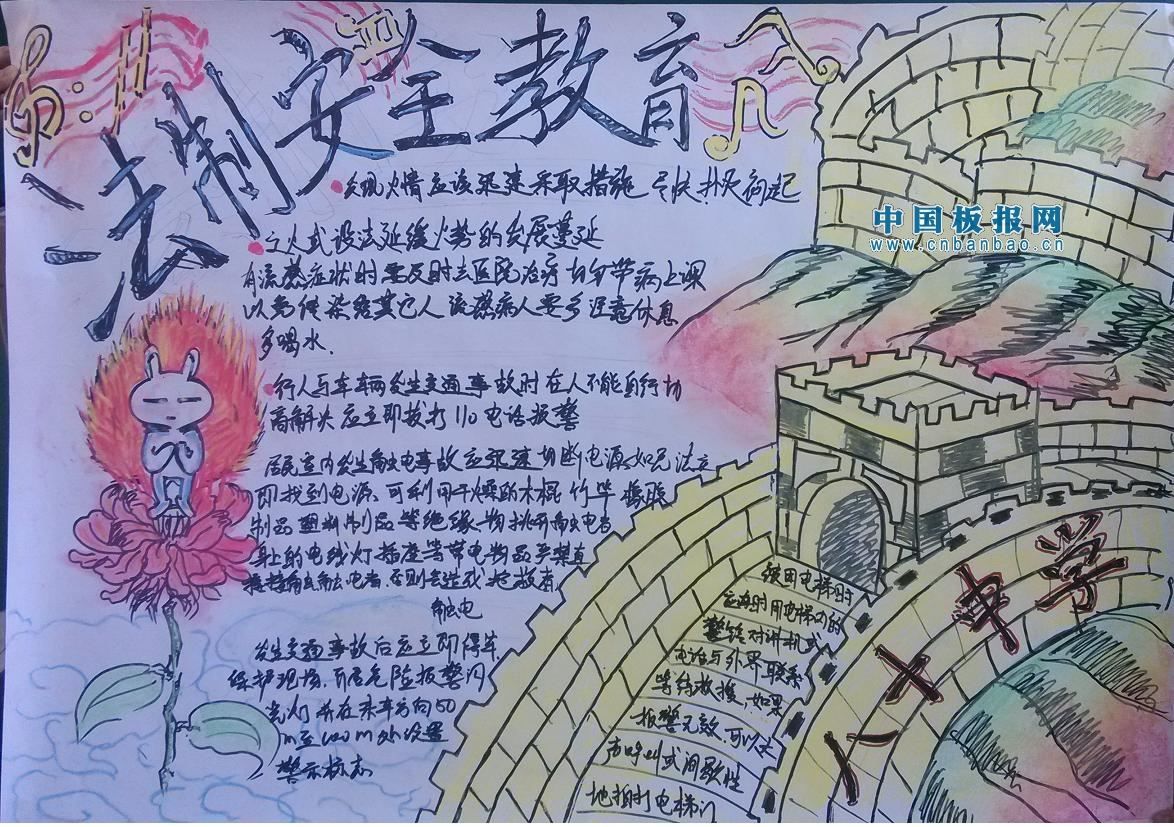 法制安全教育
发现火情应该迅速采取措施 尽快扑灭初起
之火或设法延缓火势的发展蔓延
有流感症状时要及时去医院治疗 切勿带病上课
以免传染给其它人 流感病人要多注意休息
多喝水.
行人与车辆发生交通事故时在人不能自行协
商解决 应立即拨打110电话报警
居民室内发生触电事故应迅速切断电源,如无法立
即找到电源、可利用干燥的木棍 竹竿 橡胶
制品 塑料制品等绝缘物挑开触电者
身上的电线灯插座等带电物品 严禁直
接接触触电者 否则会造成抢救者
触电
发生交通事故后应立即停车
保护现场, 开启危险报警闪
光灯 并在来车方向50
m至100m外设置
警示标志
被困电梯时
应及时用电梯内的
警铃对讲机或
电话与外界联系
等待救援,如果
报警无效,可以大
声呼叫或间歇性
地拍打电梯门
八X中学
中国板报网
www.cnbanbao.cn